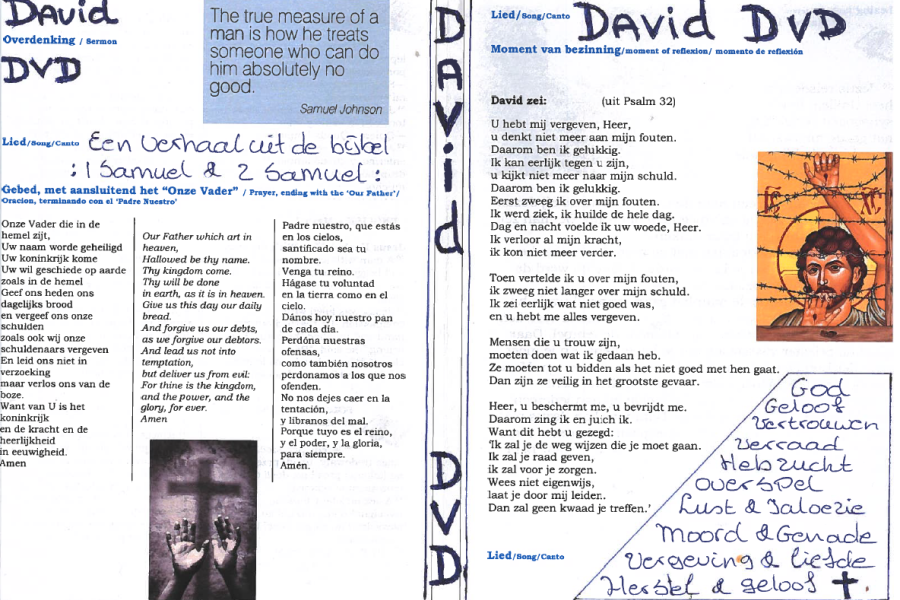 David
Overdenking / Sermon
DVD
The true measure of a
man is how he treats
someone who can do
him absolutely no
good.
Samuel Johnson
Lied/Song/Canto Een verhaal uit de bijbel
: 1 Samuel & 2 Samuel :
Gebed, met aansluitend het "Onze Vader" / Prayer, ending with the 'Our Father'/
Oracion, terminando con el 'Padre Nuestro'
Onze Vader die in de
hemel zijt,
Uw naam worde geheiligd
Uw koninkrijk kome
Uw wil geschiede op aarde
zoals in de hemel
Geef ons heden ons
dagelijks brood
en vergeef ons onze
schulden
zoals ook wij onze
schuldenaars vergeven
En leid ons niet in
verzoeking
maar verlos ons van de
boze.
Want van U is het
koninkrijk
en de kracht en de
heerlijkheid
in eeuwigheid.
Amen
Our Father which art in
heaven,
Hallowed be thy name.
Thy kingdom come.
Thy will be done
in earth, as it is in heaven.
Give us this day our daily
bread.
And forgive us our debts,
as we forgive our debtors.
And lead us not into
temptation,
but deliver us from evil:
For thine is the kingdom,
and the power, and the
glory, for ever.
Amen
Padre nuestro, que estás
en los cielos,
santificado sea tu
nombre.
Venga tu reino.
Hágase tu voluntad
en la tierra como en el
cielo.
Dános hoy nuestro pan
de cada día.
Perdóna nuestras
ofensas,
como también nosotros
perdonamos a los que nos
ofenden.
No nos dejes caer en la
tentación,
y líbranos del mal.
Porque tuyo es el reino,
y el poder, y la gloria,
para siempre.
Amén.
David
DVD
Lied/Song/Canto David DVD
Moment van bezinning/moment of reflexion/ momento de reflexión
David zei: (uit Psalm 32)
U hebt mij vergeven, Heer,
u denkt niet meer aan mijn fouten.
Daarom ben ik gelukkig.
Ik kan eerlijk tegen u zijn,
u kijkt niet meer naar mijn schuld.
Daarom ben ik gelukkig.
Eerst zweeg ik over mijn fouten.
Ik werd ziek, ik huilde de hele dag.
Dag en nacht voelde ik uw woede, Heer.
Ik verloor al mijn kracht,
ik kon niet meer verder.
Toen vertelde ik u over mijn fouten,
ik zweeg niet langer over mijn schuld.
Ik zei eerlijk wat niet goed was,
en u hebt me alles vergeven.
Mensen die u trouw zijn,
moeten doen wat ik gedaan heb.
Ze moeten tot u bidden als het niet goed met hen gaat.
Dan zijn ze veilig in het grootste gevaar.
Heer, u beschermt me, u bevrijdt me.
Daarom zing ik en juich ik.
Want dit hebt u gezegd:
'Ik zal je de weg wijzen die je moet gaan.
Ik zal je raad geven,
ik zal voor je zorgen.
Wees niet eigenwijs,
laat je door mij leiden.
Dan zal geen kwaad je treffen.'
Lied/Song/Canto
God
Geloof
Vertrouwen
Verraad
Hebzucht
Overspel
Lust & Jaloezie
Moord & Genade
Vergeving & liefde
Herstel & geloof